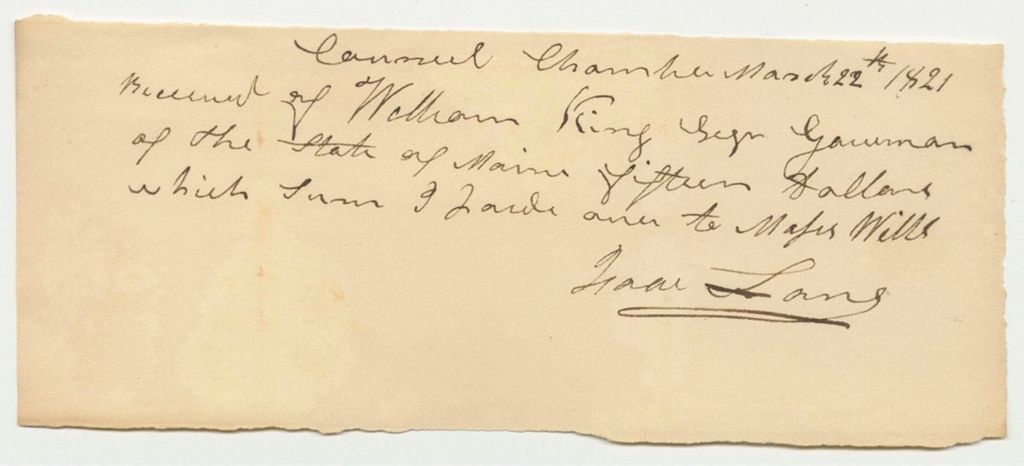 Counsel Chamber March 22th 1821
Received of William King Esqr Govurnor
of the State of Maine fifteen Dollars
which Sum I paide over to Moses Wills
Isaac Lane